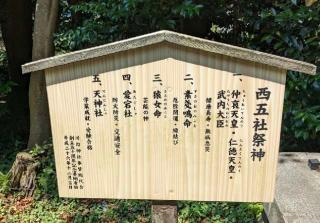 西五社祭神
一、仲哀天皇・仁徳天皇・
武内大臣
健康長寿・無病息災
二、素盞鳴命
危険開運・縁結び
三、猿女命
芸能の神
四、愛宕社
防火防災・交通安全
五、天神社
学業成就・受験合格